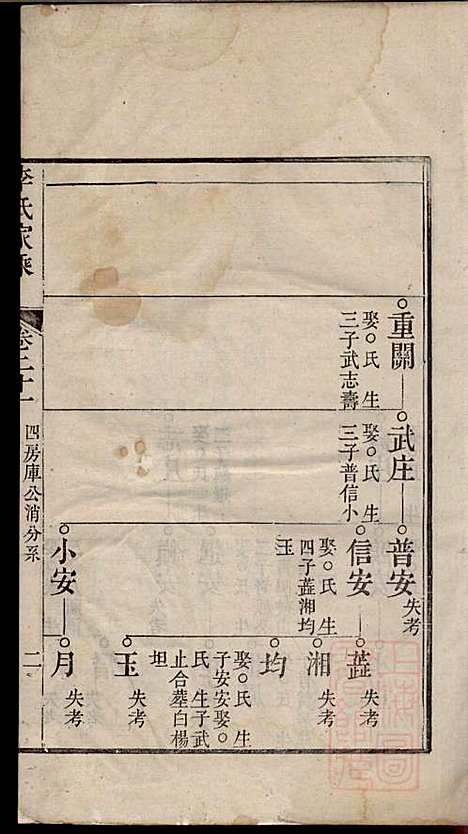 重關
娶○氏 生
三子武志壽
武庄
娶○氏 生
三子普信小
普安
失考
信安
娶○氏 生
四子蕋湘均
玉
小安
蕋
失考
湘
失考
均
娶○氏 生
子安安娶○
氏 生子武
止合墓白楊
坦
玉
失考
月
失考
李氏家乘
卷二十一
四房庫公消分系
二